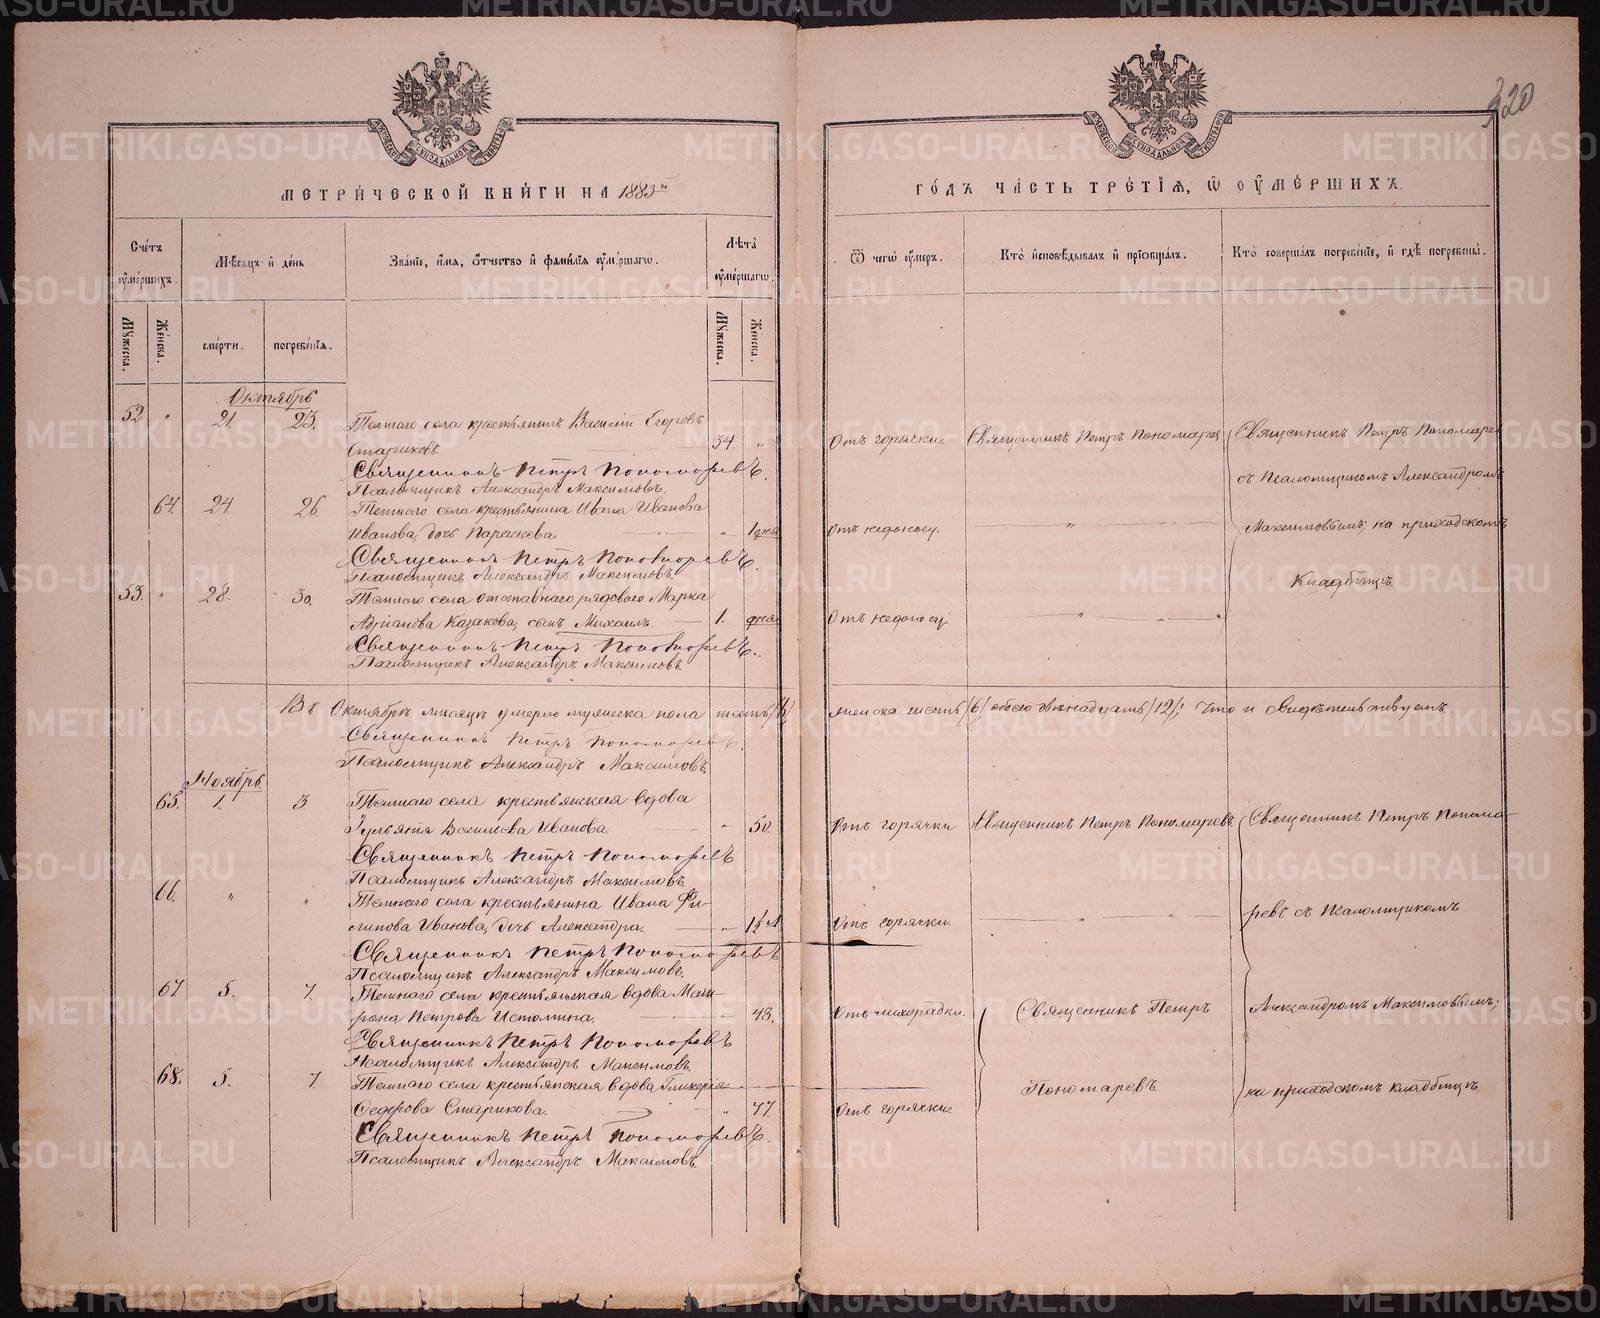 320
МЕТРИЧЕСКОЙ КНИГИ НА 1883й
Счетъ умершихъ.
Мѣсяцъ и день
Званіе, имя, отчество и фамилія умершаго.
Лѣта умершаго.
Мужеска.
Женска.
смерти.
погребенія.
Мужеска.
Женска.
Октябрь
52 " 21. 23. Темнаго села крестьянинъ Василій Егоровъ
Стариковъ. 54. "
Священникъ Петръ Пономаревъ.
Псаломщикъ Александръ Максимовъ.
64. 24 26. Темнаго села крестьянина Ивана Иванова
Иванова, дочь Параскева. " 1 дня
Священникъ Петръ Пономаревъ.
Псаломщикъ Александръ Максимовъ.
53. " 28. 30. Темнаго села отставнаго рядового Марка
Адрианова Казакова, сынъ Михаилъ. 1. дня
Священникъ Петръ Пономаревъ.
Псаломщикъ Александръ Максимовъ.
Въ Октябрѣ мѣсяцѣ умерло мужеска пола шесть /6/
Священникъ Петръ Пономаревъ.
Псаломщикъ Александръ Максимовъ.
Ноябрь.
65. 1. 3 Темнаго села крестьянская вдова
Ульянія Васильева Иванова. " 50.
Священникъ Петръ Пономаревъ
Псаломщикъ Александръ Максимовъ.
66. " " Темнаго села крестьянина Ивана Фи-
липова Иванова, дочь Александра. " 1½
Священникъ Петръ Пономаревъ
Псаломщикъ Александръ Максимовъ.
67 5. 7. Темнаго села крестьянская вдова Мат-
рона Петрова Истомина. " 48.
Священникъ Петръ Пономаревъ
Псаломщикъ Александръ Максимовъ.
68. 5. 7 Темнаго села крестьянская вдова Гликерія
Федорова Старикова. " 77.
Священникъ Петръ Пономаревъ.
Псаломщикъ Александръ Максимовъ.
ГОДЪ ЧАСТЬ ТРЕТІЯ, Ѡ ОУМЕРШИХЪ.
Ѿ чегѡ умеръ.
Кто исповѣдывалъ и пріобщалъ.
Кто совершалъ погребеніе, и гдѣ погребены.
Отъ горячки. Священникъ Петръ Пономаревъ Священникъ Петръ Пономаревъ
съ Псаломщикомъ Александромъ
Отъ недоносу. " Максимовымъ; на приходскомъ
Кладбищѣ.
Отъ недоносу "
женска шесть /6/ обоего двѣнадцать /12/; Что и свидѣтельствуемъ
Отъ горячки Священникъ Петръ Пономаревъ. Священникъ Петръ Понома-
Отъ горячки. " " ревъ съ Псаломщикомъ
Отъ лихорадки. Священникъ Петръ Александромъ Максимовымъ;
Пономаревъ на приходскомъ кладбищѣ
Отъ горячки.
METRIKI.GASO-URAL.RU